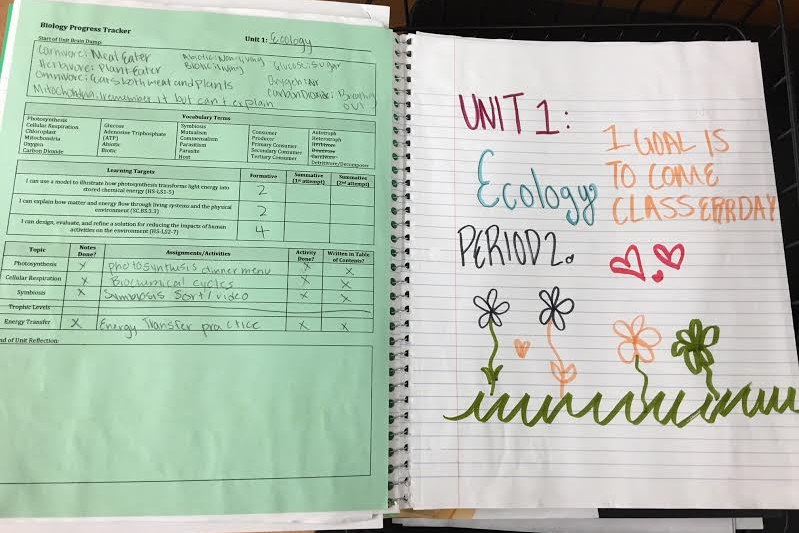 Biology Progress Tracker
Start of Unit Brain Dump: Unit 1: Ecology
Carnivore: Meat Eater Abiotic: Non-living Glucose: Sugar
Herbivore: Plant Eater Biotic: living
Omnivore: Ears both meat and plants Oxygen: Air
Mitochondria: I remember it but can't explain Carbon Dioxide: Breathing
out
Vocabulary Terms
Photosynthesis
Cellular Respiration
Chloroplast
Mitochondria
Oxygen
Carbon Dioxide
Glucose
Adenosine Triphosphate
(ATP)
Abiotic
Biotic
Symbiosis
Mutualism
Commensalism
Parasitism
Parasite
Host
Consumer
Producer
Primary Consumer
Secondary Consumer
Tertiary Consumer
Autotroph
Heterotroph
Herbivore
Omnivore
Carnivore
Detritivore/Decomposer
Learning Targets Formative Summative (1st attempt) Summative (2nd attempt)
I can use a model to illustrate how photosynthesis transforms light energy into
stored chemical energy (HS-LS1-5) 2
I can explain how matter and energy flow through living systems and the physical
environment (SC.BS.3.3) 2
I can design, evaluate, and refine a solution for reducing the impacts of human
activities on the environment (HS-LS2-7) 4
Topic Notes Done? Assignments/Activities Activity Done? Written in Table of Contents?
Photosynthesis X photosynthesis dinner menu X X
Cellular Respiration X Biochemical cycles X X
Symbiosis X Symbiosis Sort/video X X
Trophic Levels
Energy Transfer X Energy Transfer practice X X
nd of Unit Reflection:
UNIT 1:
Ecology
PERIOD 2.
1 GOAL IS
TO COME
CLASS ERRDAY